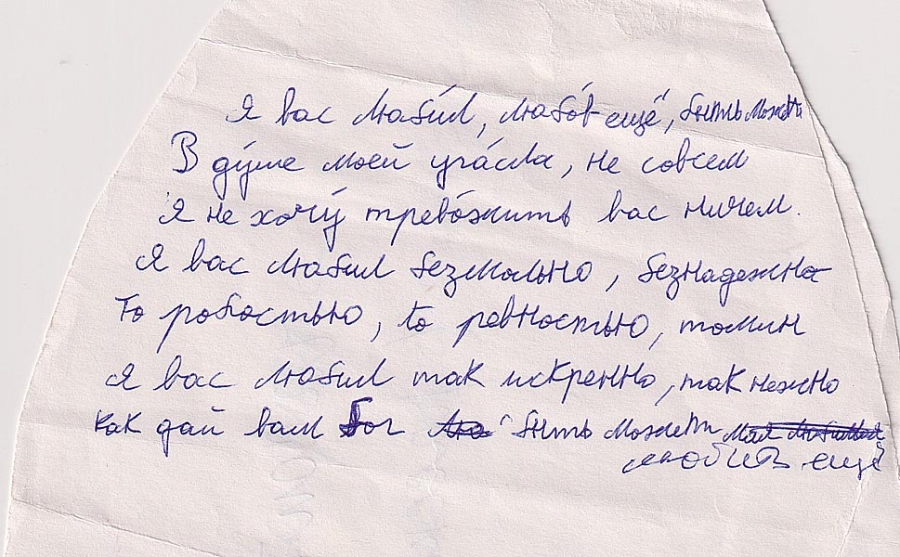 Я вас люби́л, любо́в ещё, быть может
В ду́ше моей уга́сла, не совсем
Я не хочу́ трево́жить вас ничем.
Я вас любил безмольно, безнадежно
То робостью, то ревностью, томин
Я вас любил так искренно, так нежно
Как дай вам Бог быть может
любить ещё